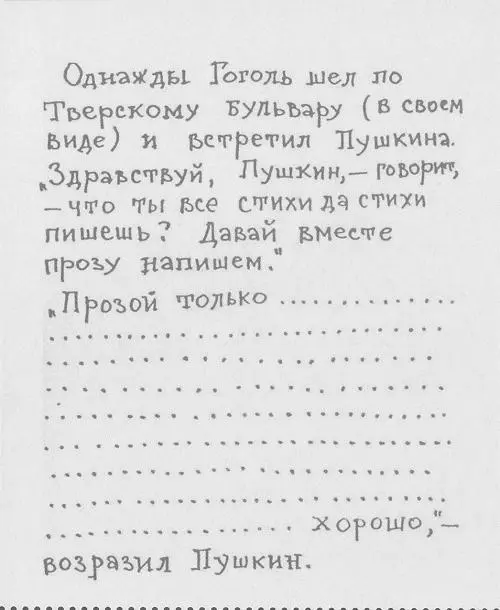 Однажды Гоголь шел по
Тверскому бульвару (в своем
виде) и встретил Пушкина.
„Здравствуй, Пушкин,—говорит,
—что ты все стихи да стихи
пишешь? Давай вместе
прозу напишем."
„Прозой только ..............
..............................
..............................
..............................
..............................
..............................
..............................
..............................
................... хорошо,"—
возразил Пушкин.